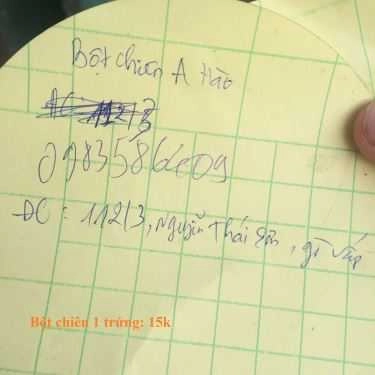 Bột chiên A Hào
ĐC 112/3
0783586409
ĐC : 112/3, Nguyễn Thái Sơn, gò vấp
Bột chiên 1 trứng: 15k